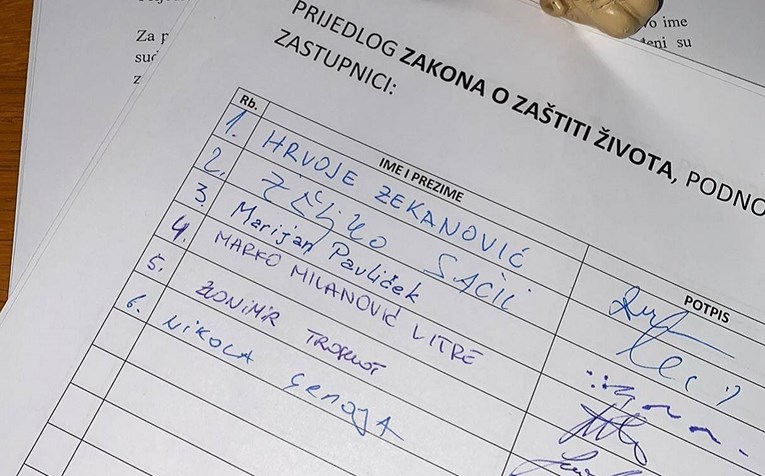 Za p
suc
z
vo ime
đeni su
PRIJEDLOG ZAKONA O ZAŠTITI ŽIVOTA, PODNO
ZASTUPNICI:
Rb. IME I PREZIME POTPIS
1. HRVOJE ZEKANOVIĆ
2. ŽELJKO SAČIĆ
3. Marijan Pavliček
4. MARKO MILANOVIĆ LITRE
5. ZVONIMIR TROSKOT
6. NIKOLA